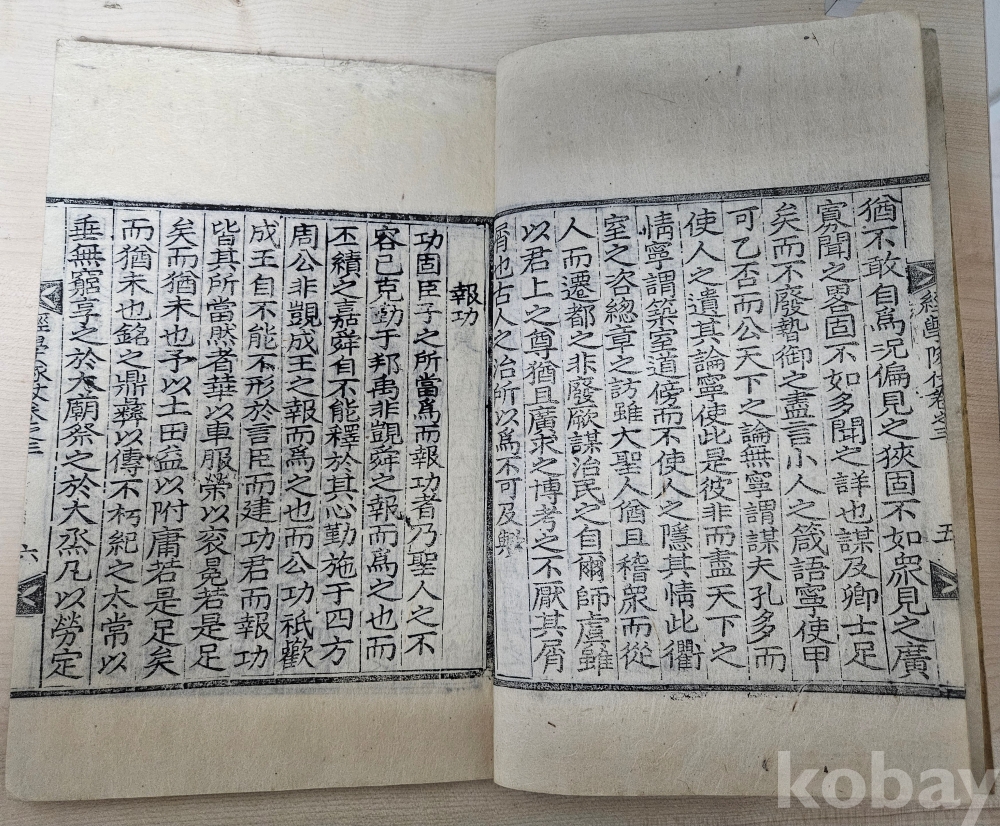 猶不敢自爲况偏見之狹固不如衆見之廣
寡聞之畧固不如多聞之詳也謀及卿士足
矣而不廢暬御之盡言小人之箴語寧使甲
可乙否而公天下之論無寧謂謀夫孔多而
使人之遺其論寧使此是彼非而盡天下之
情寧謂築室道傍而不使人之隱其情此衢
室之咨總章之訪雖大聖人猶且稽衆而從
人而遷都之非廢厥謀治民之自爾師虞雖
以君上之尊猶且廣求之博考之不厭其屑
屑也古人之治所以爲不可及歟
五
報功
功固臣子之所當爲而報功者乃聖人之不
容己克勤于邦禹非覬舜之報而爲之也而
丕績之嘉舜自不能釋於其心勤施于四方
周公非覬成王之報而爲之也而公功祇歡
成王自不能不形於言臣而建功君而報功
皆其所當然者華以車服榮以衮冕若是足
矣而猶未也予以土田益以附庸若是足矣
而猶未也銘之鼎彝以傳不朽紀之太常以
垂無窮享之於太廟祭之於大烝凡以勞定
六
kobay